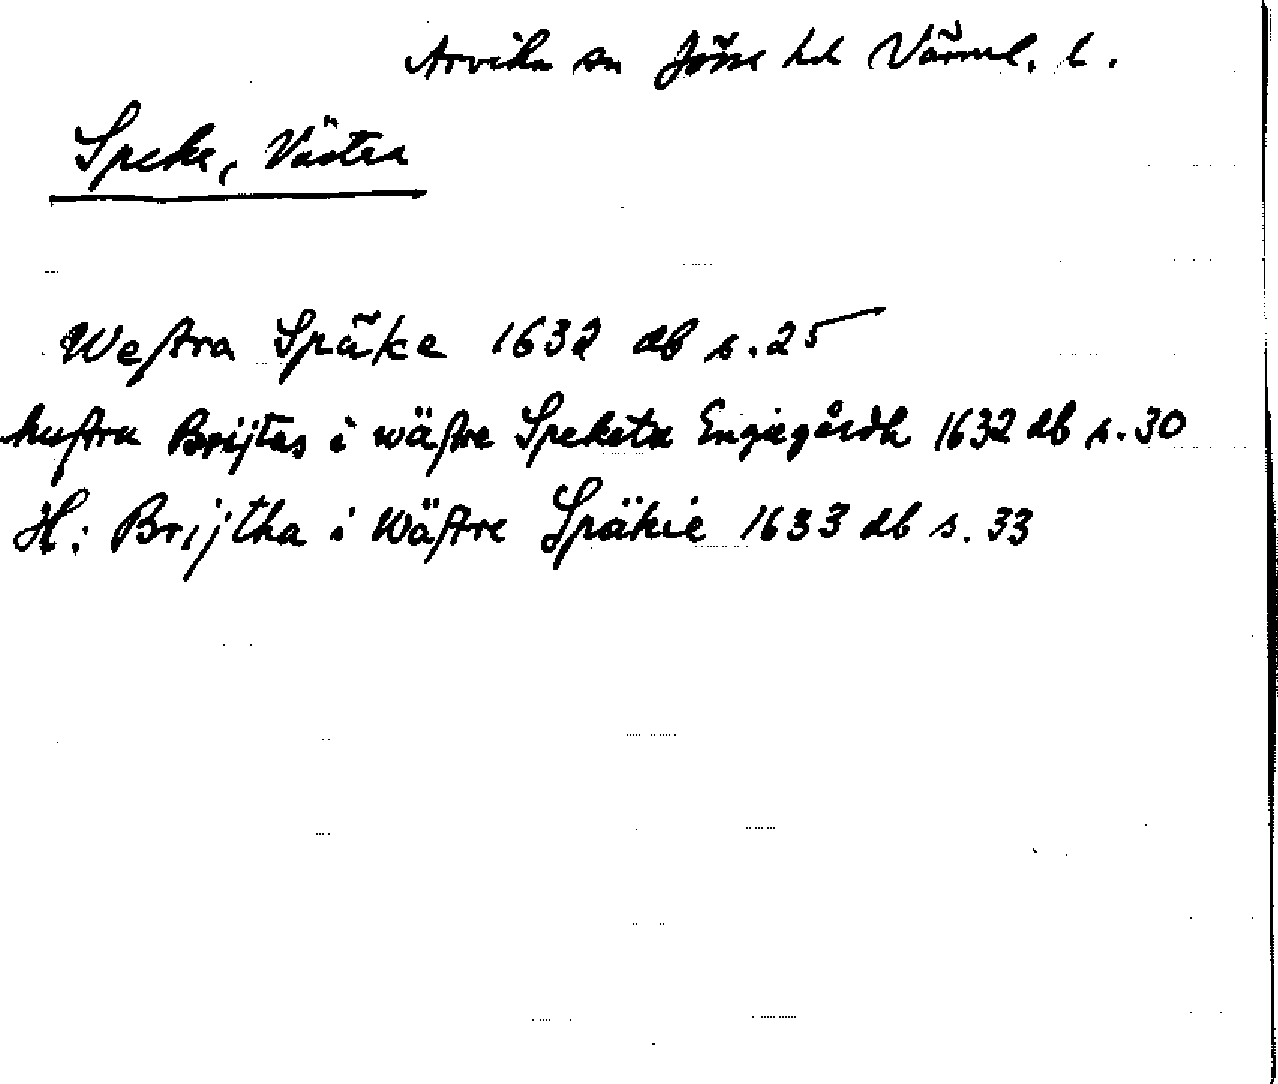 Arvika sn Jösse hd Värml. l.
Speke, Västra
Westra Späke 1632 db s. 25
hustru Brijtas i wästre Speketu Engiegårdh 1632 db s. 30
H: Brijtha i Wästre Späkie 1633 db s. 33